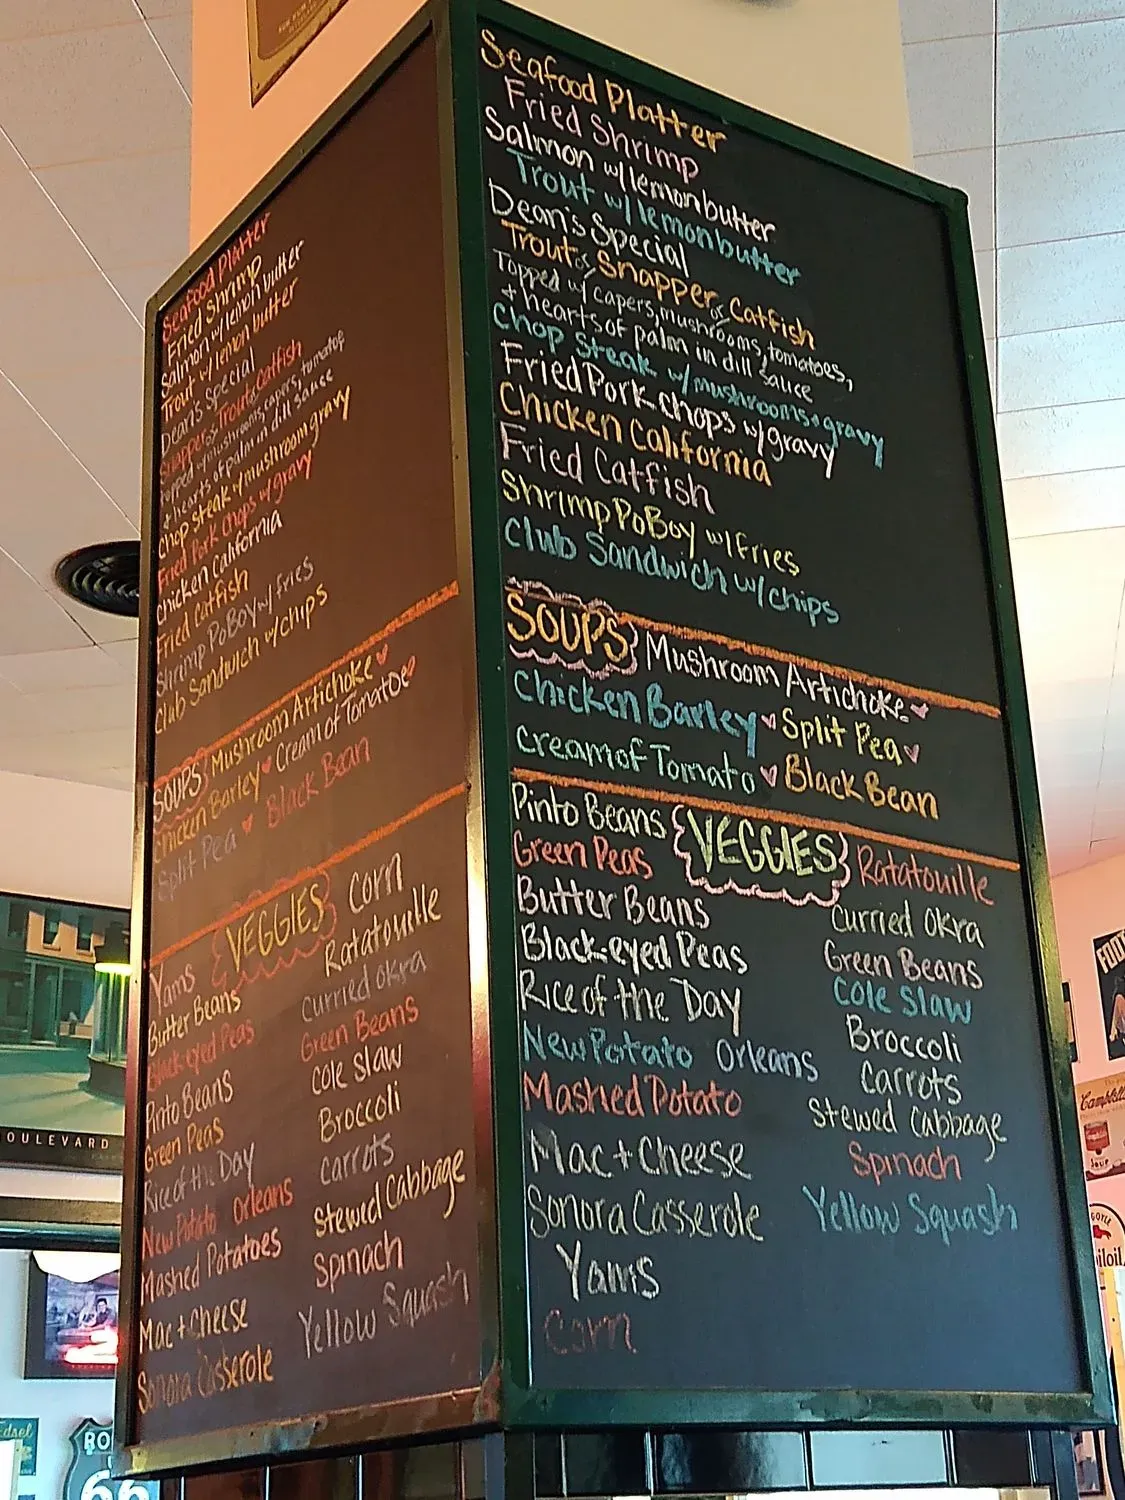 Seafood Platter
Fried Shrimp
Salmon w/ lemon butter
Trout w/ lemon butter
Dean's Special
Snapper or Trout or Catfish
Topped w/ mushrooms, capers, tomatoes
+ hearts of palm in dill sauce
Chop Steak w/ mushroom gravy
Fried Pork Chops w/ gravy
Chicken California
Fried Catfish
Shrimp PoBoy w/ fries
Club Sandwich w/ chips
SOUPS Mushroom Artichoke ♥
Chicken Barley ♥ Cream of Tomatoe ♥
Split Pea ♥ Black Bean
VEGGIES
Yams
Butter Beans
Black-eyed Peas
Pinto Beans
Green Peas
Rice of the Day
New Potato Orleans
Mashed Potatoes
Mac + Cheese
Sonora Casserole
Corn
Ratatouille
Curried Okra
Green Beans
Cole Slaw
Broccoli
Carrots
Stewed Cabbage
Spinach
Yellow Squash
Seafood Platter
Fried Shrimp
Salmon w/ lemon butter
Trout w/ lemon butter
Dean's Special
Trout or Snapper or Catfish
Topped w/ capers, mushrooms, tomatoes,
+ hearts of palm in dill sauce
Chop Steak w/ mushrooms + gravy
Fried Pork chops w/ gravy
Chicken California
Fried Catfish
Shrimp PoBoy w/ Fries
Club Sandwich w/ chips
SOUPS Mushroom Artichoke ♥
Chicken Barley ♥ Split Pea ♥
Cream of Tomato ♥ Black Bean
VEGGIES
Pinto Beans
Green Peas
Butter Beans
Black-eyed Peas
Rice of the Day
New Potato Orleans
Mashed Potato
Mac + Cheese
Sonora Casserole
Yams
Corn
Ratatouille
Curried Okra
Green Beans
Cole Slaw
Broccoli
Carrots
Stewed Cabbage
Spinach
Yellow Squash
OULEVARD
Edsel
RO
66
FOO
Campbell's